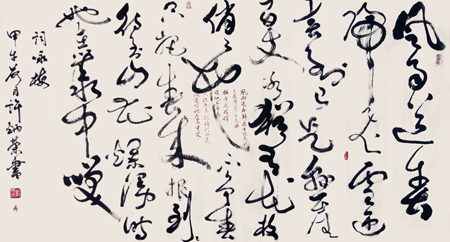 风雨送春
归飞雪迎
春到已是悬崖
百丈冰犹有花枝
俏俏也不争春
只把春来报
待到山花烂漫时
她在丛中笑
词咏梅
甲午 月许 荣書